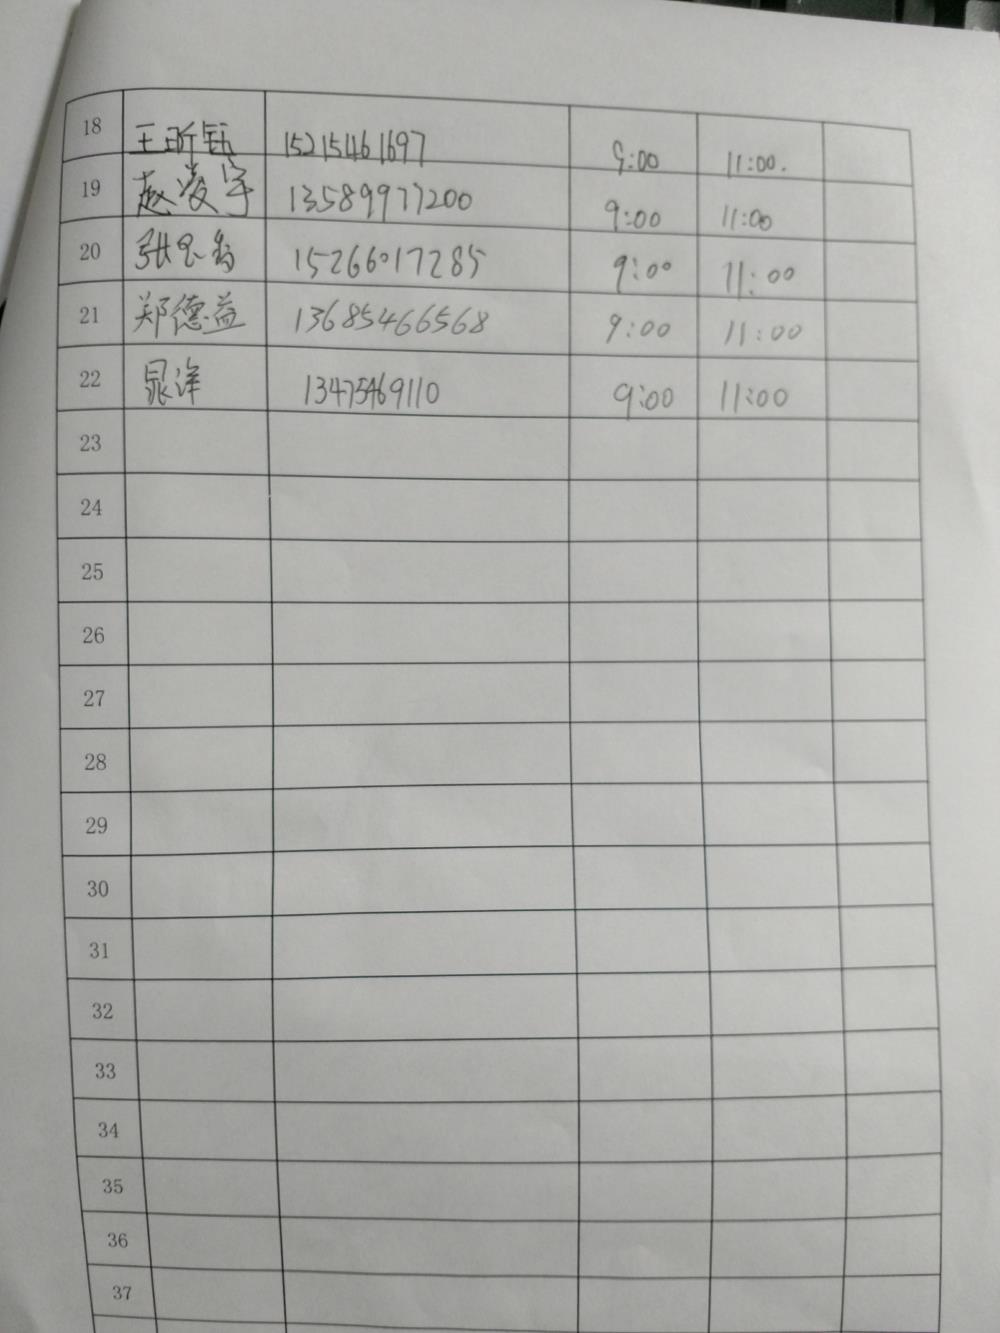 18 王昕钰 15215461697 9:00 11:00.
19 赵凌宇 13589977200 9:00 11:00
20 张 15266017285 9:00 11:00
21 郑德益 13685466568 9:00 11:00
22 晁洋 13475469110 9:00 11:00
23
24
25
26
27
28
29
30
31
32
33
34
35
36
37